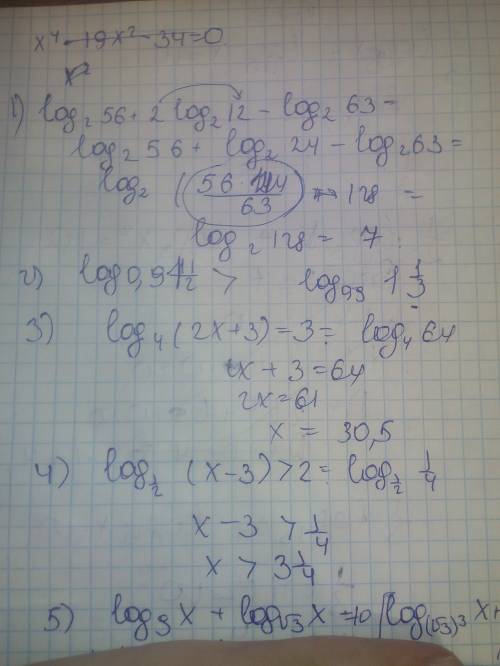 x⁴ - 19x² - 34 = 0
x²
1) log₂ 56 + 2 log₂ 12 - log₂ 63 =
log₂ 56 + log₂ 24 - log₂ 63 =
log₂ (56 · 144 / 63) = 128 =
log₂ 128 = 7
2) log 0,9 1 1/2 > log₀,₉ 1 1/3
3) log₄ (2x+3) = 3 = log₄ 64
2x + 3 = 64
2x = 61
x = 30,5
4) log_{1/2} (x-3) > 2 = log_{1/2} 1/4
x - 3 > 1/4
x > 3 1/4
5) log₃ x + log_{√3} x = 10 / log_{(√3)³} x +